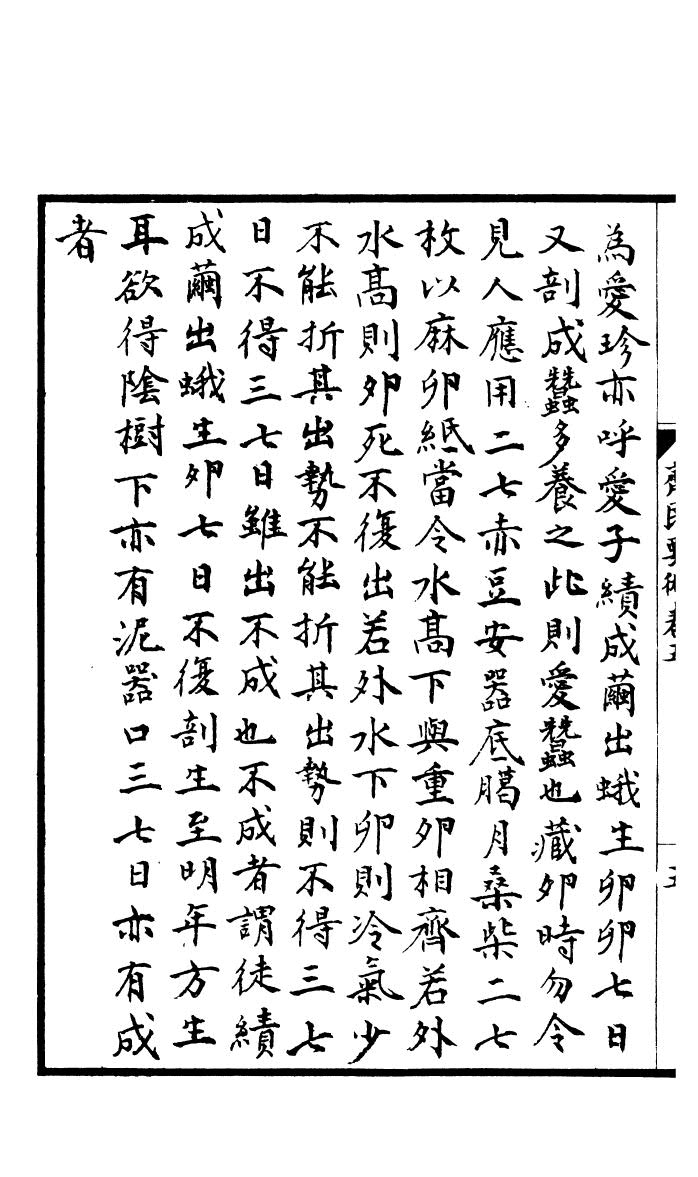 為愛珍亦呼愛子績成繭出蛾生卵卵七日
又剖成蠶多養之此則愛蠶也藏卵時勿令
見人應用二七赤豆安器底臈月桑柴二七
枚以麻卵紙當令水高下與重卵相齊若外
水高則卵死不復出若外水下卵則冷氣少
不能折其出勢不能折其出勢則不得三七
日不得三七日雖出不成也不成者謂徒績
成繭出蛾生卵七日不復剖生至明年方生
耳欲得陰樹下亦有泥器口三七日亦有成
者
齊民要術卷五